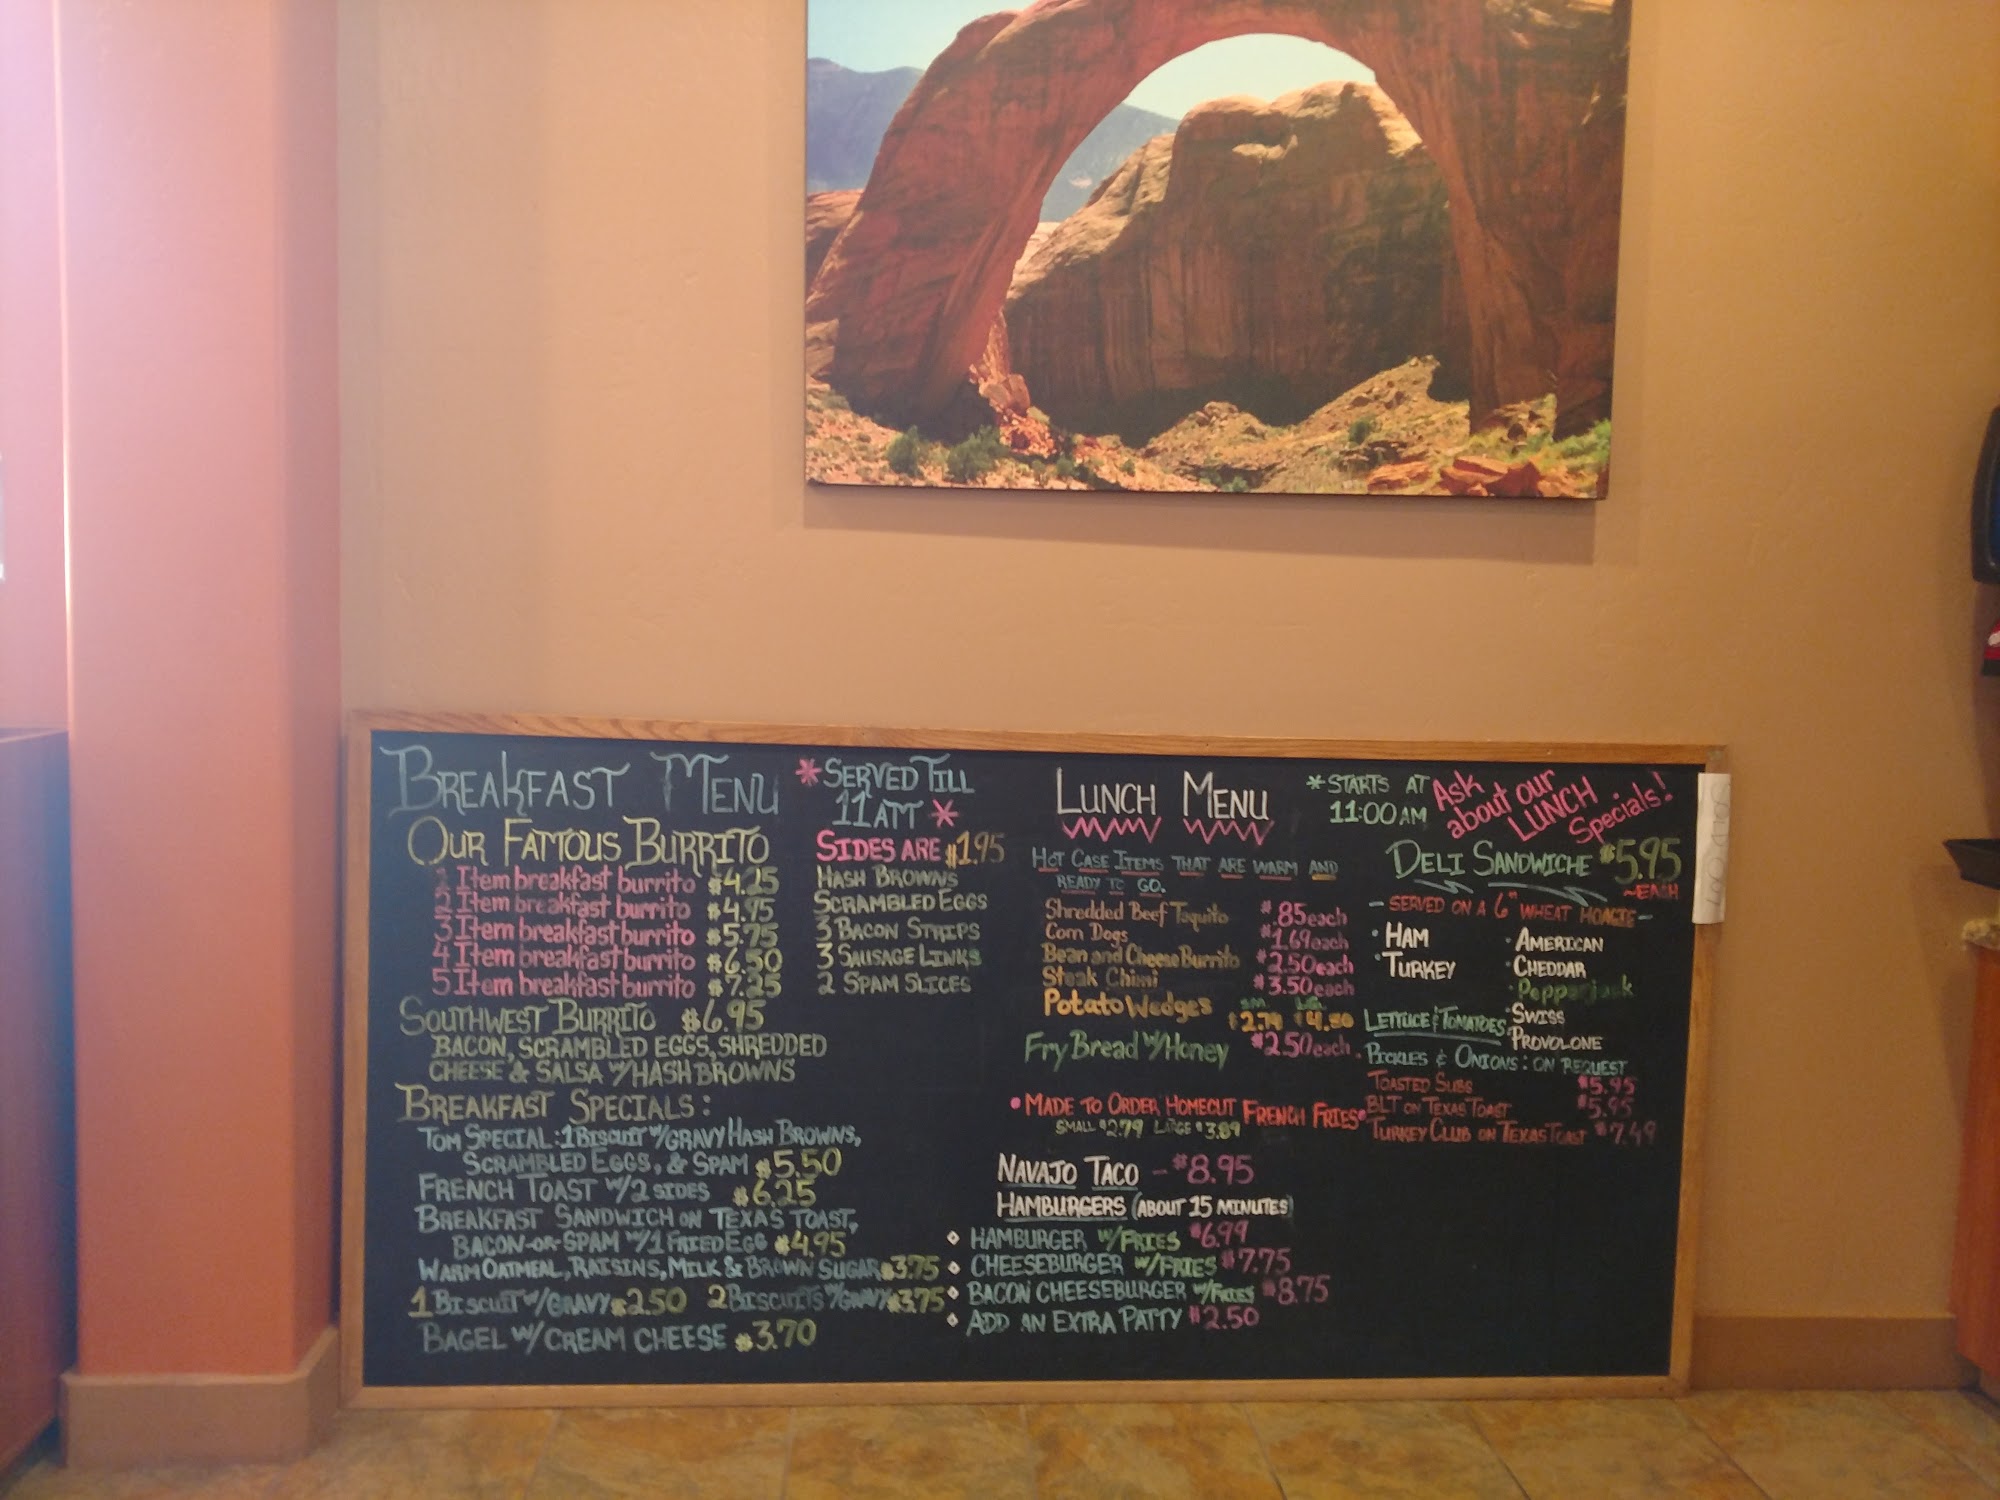 BREAKFAST MENU
*SERVED TILL
11 AM *
OUR FAMOUS BURRITO
1 Item breakfast burrito $4.25
2 Item breakfast burrito $4.95
3 Item breakfast burrito $5.75
4 Item breakfast burrito $6.50
5 Item breakfast burrito $7.25
SIDES ARE $1.95
HASH BROWNS
SCRAMBLED EGGS
3 BACON STRIPS
3 SAUSAGE LINKS
2 SPAM SLICES
SOUTHWEST BURRITO $6.95
BACON, SCRAMBLED EGGS, SHREDDED
CHEESE & SALSA W/HASH BROWNS
BREAKFAST SPECIALS:
TOM SPECIAL: 1 BISCUIT W/GRAVY HASH BROWNS,
SCRAMBLED EGGS, & SPAM $5.50
FRENCH TOAST W/2 SIDES $6.25
BREAKFAST SANDWICH ON TEXAS TOAST,
BACON-OR-SPAM W/1 FRIED EGG $4.95
WARM OATMEAL, RAISINS, MILK & BROWN SUGAR $3.75
1 BISCUIT W/GRAVY $2.50 2 BISCUITS W/GRAVY $3.75
BAGEL W/ CREAM CHEESE $3.70
LUNCH MENU
*STARTS AT
11:00 AM
Ask
about our
LUNCH
Specials!
HOT CASE ITEMS THAT ARE WARM AND
READY TO GO.
Shredded Beef Taquito $.85 each
Corn Dogs $1.69 each
Bean and Cheese Burrito $2.50 each
Steak Chimi $3.50 each
SM. LG.
Potato Wedges $2.79 $4.50
Fry Bread W/Honey $2.50 each
• MADE TO ORDER HOMECUT FRENCH FRIES •
SMALL $2.79 LARGE $3.89
NAVAJO TACO - $8.95
HAMBURGERS (ABOUT 15 MINUTES)
◇ HAMBURGER W/FRIES $6.99
◇ CHEESEBURGER W/FRIES $7.75
◇ BACON CHEESEBURGER W/FRIES $8.75
◇ ADD AN EXTRA PATTY $2.50
DELI SANDWICHE $5.95
~EACH
- SERVED ON A 6" WHEAT HOAGIE -
• HAM
• TURKEY
• AMERICAN
• CHEDDAR
• Pepperjack
• SWISS
• PROVOLONE
LETTUCE & TOMATOES
• PICKLES & ONIONS: ON REQUEST
TOASTED SUBS $5.95
BLT ON TEXAS TOAST $5.95
TURKEY CLUB ON TEXAS TOAST $7.49